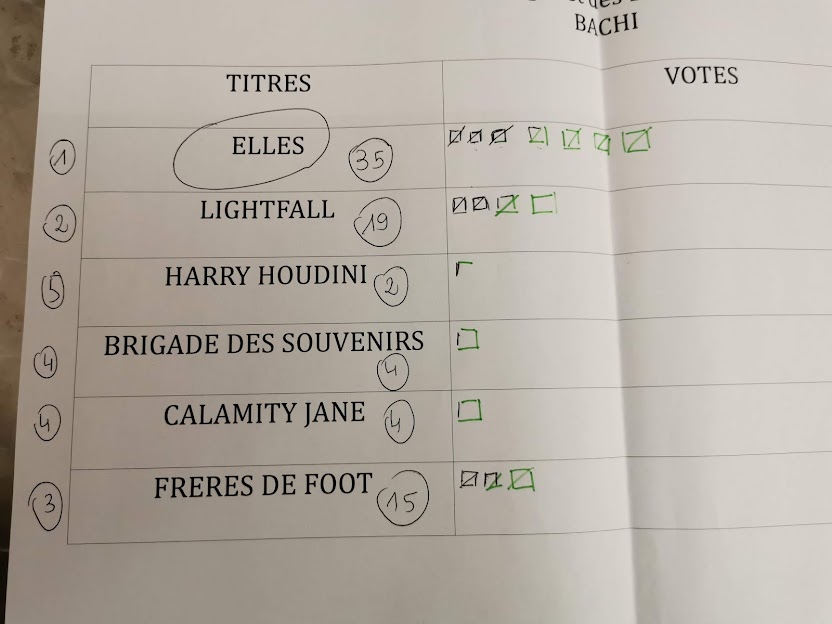 BACHI
TITRES VOTES
1 ELLES 35
2 LIGHTFALL 19
5 HARRY HOUDINI 2
4 BRIGADE DES SOUVENIRS
4
4 CALAMITY JANE 4
3 FRERES DE FOOT 15